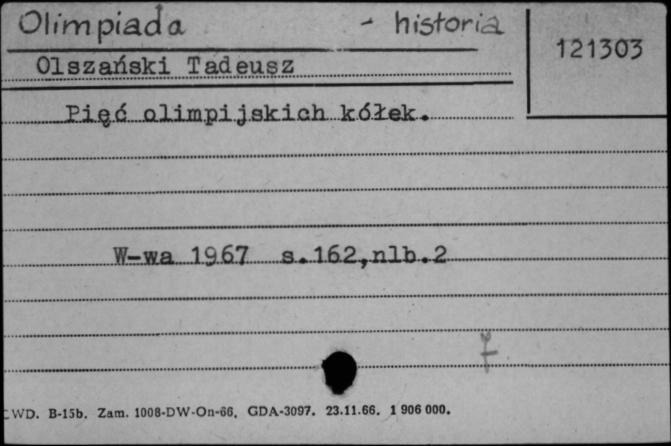 Olimpiada - historia
121303
Olszański Tadeusz
Pięć olimpijskich kółek.
W-wa 1967 s.162,nlb.2
CWD. B-15b. Zam. 1008-DW-On-66. GDA-3097. 23.11.66. 1 906 000.